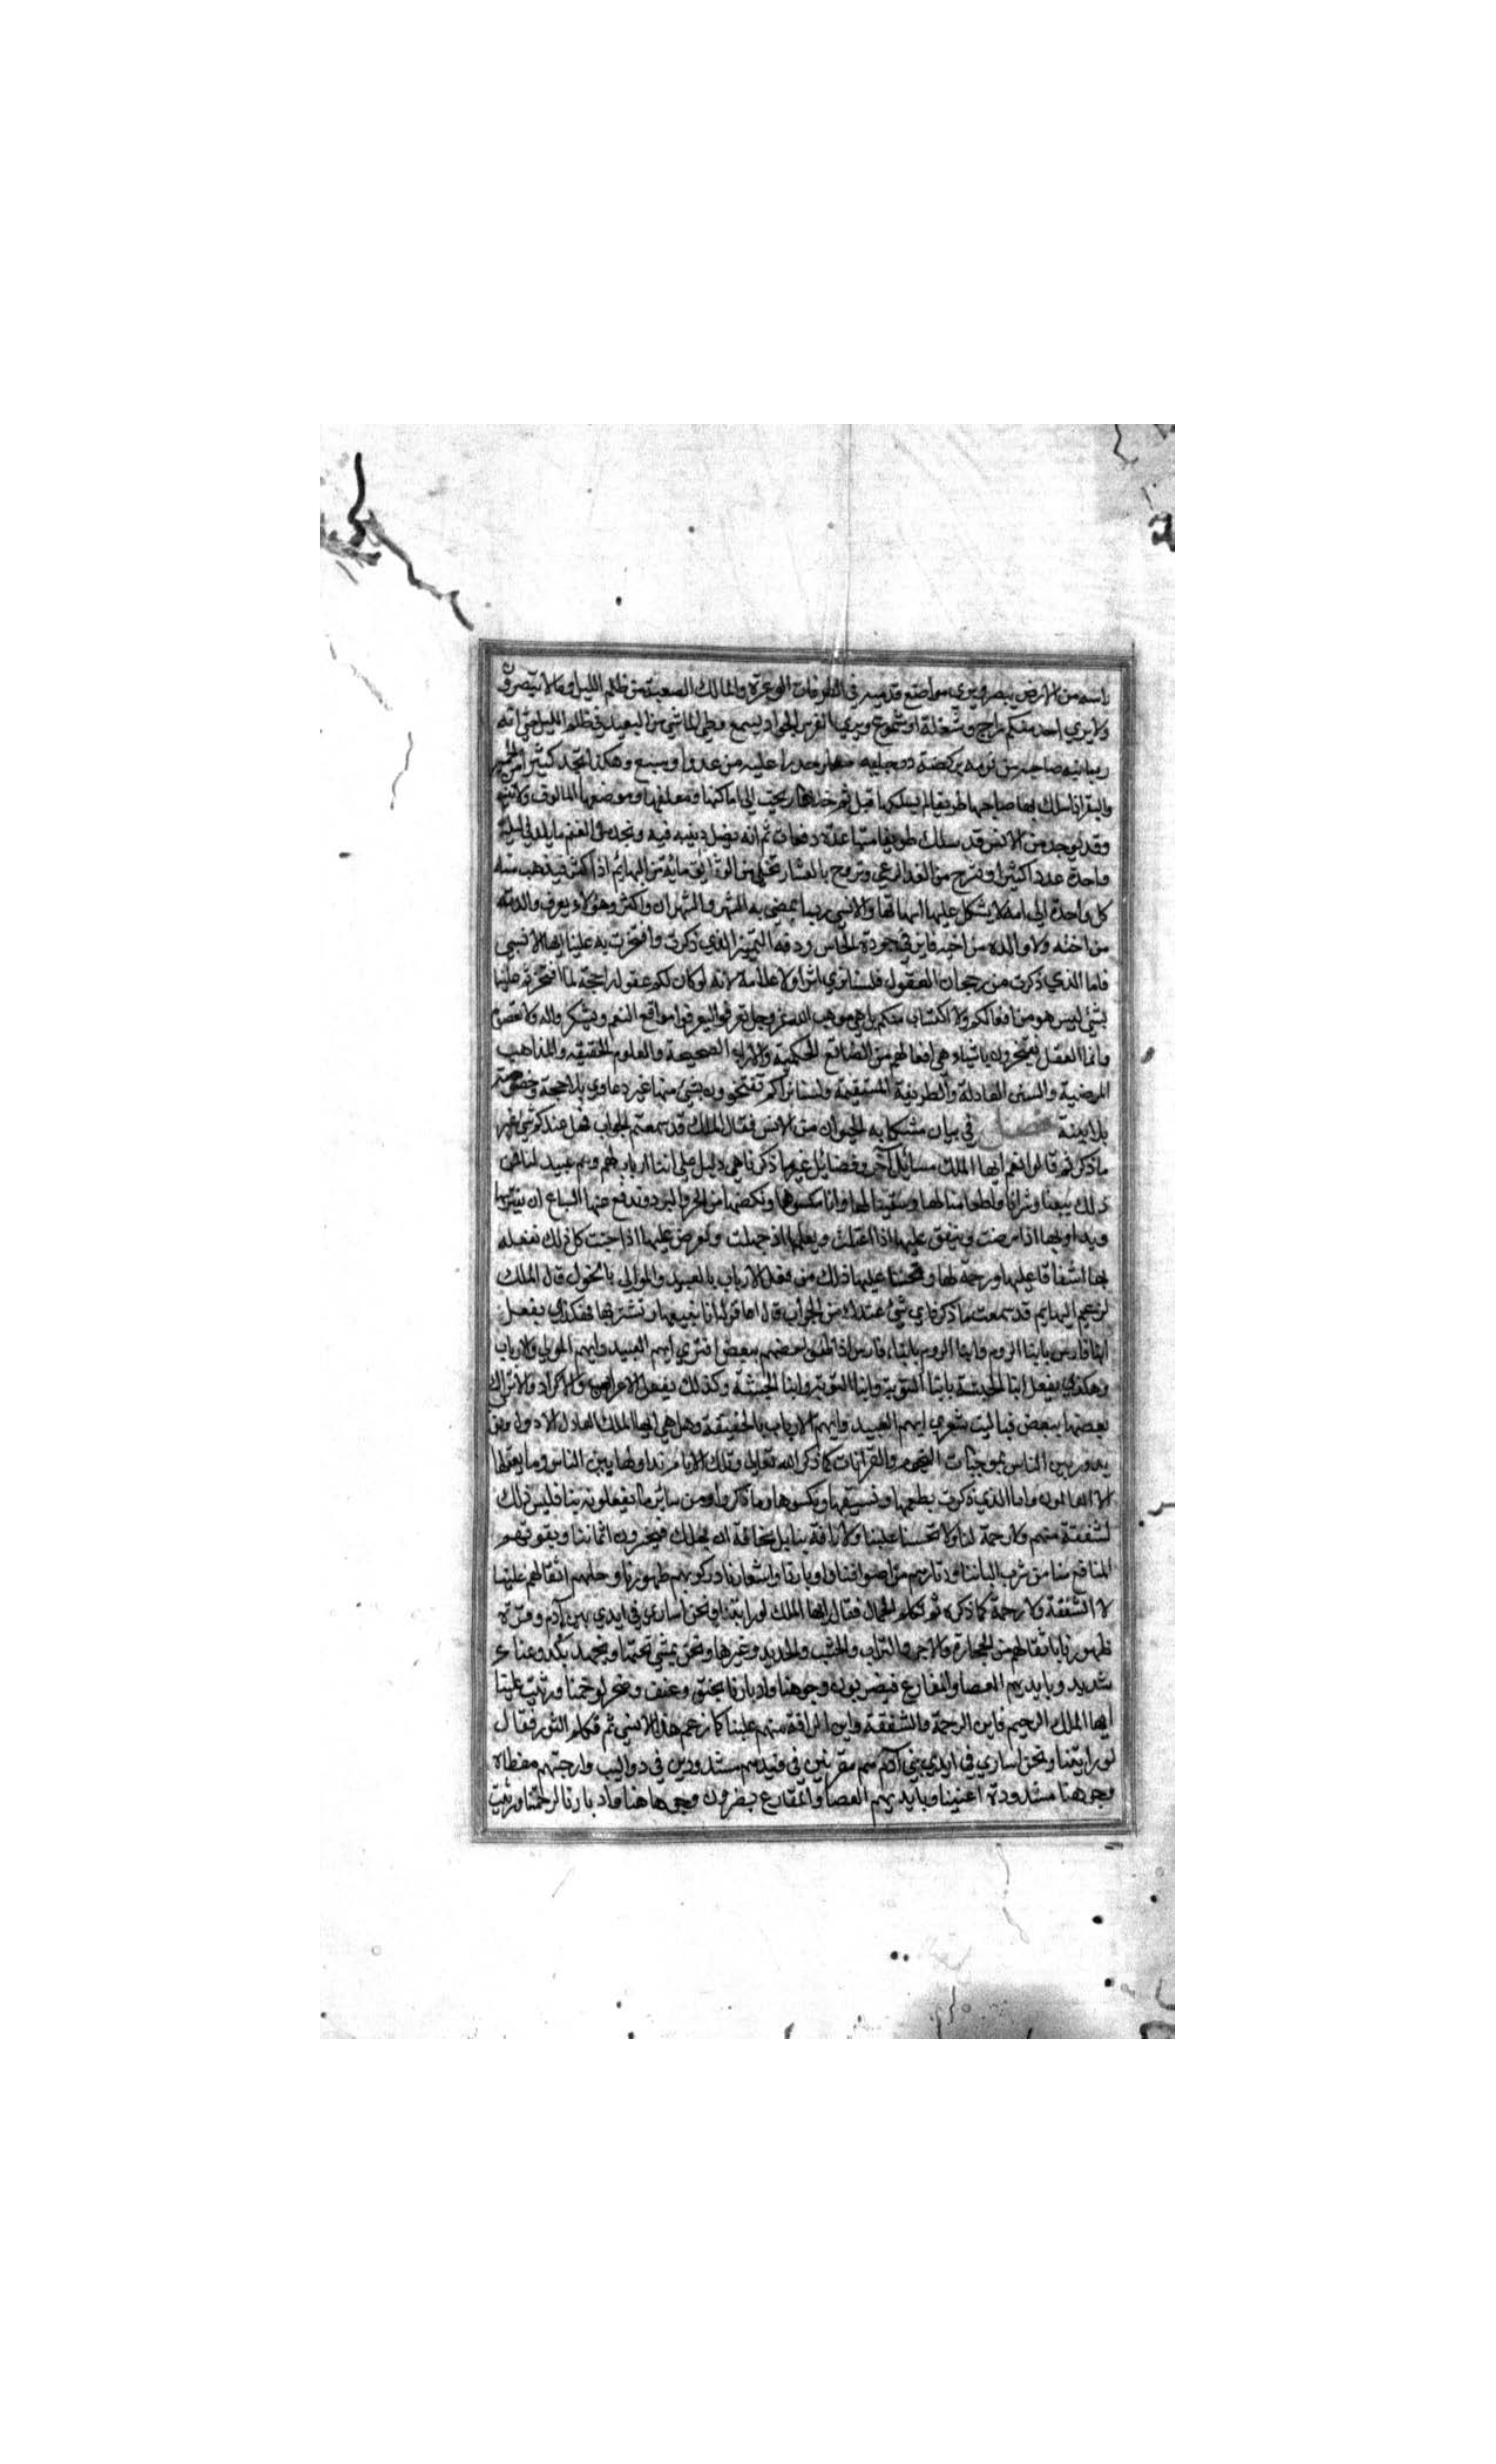 راسه من الارض يبصر ويري مواضع قدميه في الطرقات الوعرة والمالك الصعبة من ظلم الليل ومالا يبصرون
ولا يري احد منكم بسراج وشعلة او شموع ويري الفرس الجواد يسمع وطي الماشي من البعيد في ظلم الليل حتي انه
ربما نبه صاحبه من نومه بركضة برجليه حذرا عليه من عدو او سبع وهكذا تجد كثيرا من الحمير
والبقر اذا سلك بها صاحبها طريقا لم يسلكها قبل ثم خلاها رجعت الي اماكنها ومعلفها وموضعها المالوف ولا تتيه
وقد يوجد من الانس قد سلك طريقا متها عدة دفعات ثم انه يضل ويتيه فيه ونجد من الغنم ما يلد في ليلة
واحدة عددا كثيرا وتسرح من الغد الي الرعي وتروح بالعشا وتخلي من الوثاق مائة من البهايم او اكثر فيذهب منه
كل واحدة الي امه لا يشكل عليها امهاتها والانسي ربما يمضي به الشهر والشهران واكثر وهو لا يعرف والدته
من اخته ولا والده من اخيه فاين جودة الحاس ودقة التمييز الذي ذكرت وافتخرت به علينا ايها الانسي
فاما الذي ذكرت من رجحان العقول فلسنا نري اثرا ولا علامة لانه لو كان لكم عقول راجحة لما افتخرتم علينا
بشئ ليس هو من افعالكم ولا اكتساب منكم بل هي موهب الله عز وجل تعرفوا ليعرفوا مواقع النعم ويشكروا له ولا تعصون
وانما العقل يفتخرون باشياء هي افعالهم من الصنائع الحكمية والاراء الصحيحة والعلوم الحقيقية والمذاهب
المرضية والسنن العادلة والطريقة المستقيمة ولسنا نراكم تفتخرون بشئ منها غير دعاوي بلا حجة وخصومة
بلا بينة فصل في بيان مشكاية الحيوان من الانس فقال الملك قد سمعتم الجواب فهل عندكم شي غير
ما ذكرتم قالوا نعم ايها الملك مسائل آخر وفضايل غير ما ذكرناهي دليل علي اننا ارباب لهم وهم عبيد لنا فمن
ذلك بيعنا وشرانا واطعامنا لها وسقينا لها وانا نكسوها ونكنها من الحر والبرد وندفع عنها السباع ان يفترسها
ويداويها اذا مرضت وينفق عليها اذا اعتلت ويعلمها اذ جهلت ونعرض عليها اذا جنت كل ذلك نفعله
بها اشفاقا عليها ورحمة لها وتحسنا عليها ذلك من فعل الارباب بالعبيد والموالي بالخول قال الملك
لزعيم البهايم قد سمعت ما ذكر فاي شئ عندك من الجواب قال اما قوله انا نبيعها ونشتريها فهكذي يفعل
ابنا فارس بابنا الروم وابنا الروم بابناء فارس اذا ظفر بعضهم ببعض افتري ايهم العبيد وايهم الموالي والارباب
وهكذي يفعل ابنا الحبشة بابنا النوبة وابنا النوبة وابنا الحبشة وكذلك يفعل الاعراب والاكراد والاتراك
بعضها ببعض فيا ليت شعري ايهم العبيد وايهم الارباب بالحقيقة وهل هي ايها الملك العادل الا دول ونوب
يدور بين الناس بموجبات النجوم والقرانات كما ذكر الله تعالي وتلك الايام نداولها بين الناس وما يعقلها
الا العالمون واما الذي ذكرت بطعمها ونسقيها ونكسوها وما ذكر وا ومن ساير ما تفعلونه بنا فليس ذلك
لشفقة منهم ولا رحمة لنا ولا تحسنا علينا ولا رافة بنا بل مخافة ان يهلك فيخسرون اثماننا ويفوتهم
المنافع منا من شرب الباننا ودثارهم من اصوافنا واوبارنا واشعارنا وركوبهم ظهورنا وحملهم اثقالهم علينا
لا اشفقة ولا رحمة كما ذكره ثم تكلم الجمال فقال ايها الملك لو رايتنا ونحن اساري في ايدي بني آدم وقرة
ظهورنا باثقالهم من الحجارة والاجر والتراب والخشب والحديد وغيرها ونحن نمشي تحتها ونجهد بكد وعناء
شديد وبايديهم العصا والمقارع فيضربون وجوهنا وادبارنا بخنق وعنف وضجر لرحمتنا ورثيت علينا
ايها الملك الرحيم فاين الرحمة والشفقة واين الرافة منهم علينا كما زعم هذا الانسي ثم تكلم الثور فقال
لو رايتنا ونحن اساري في ايدي بني آدم مقرنين في قيدهم مشدودين في دواليب وارحيتهم مغطاة
وجوهنا مشدودة اعنينا وبايديهم العصا والمقارع يضربون وجوهاهنا وادبارنا لرحمتنا ورثيت